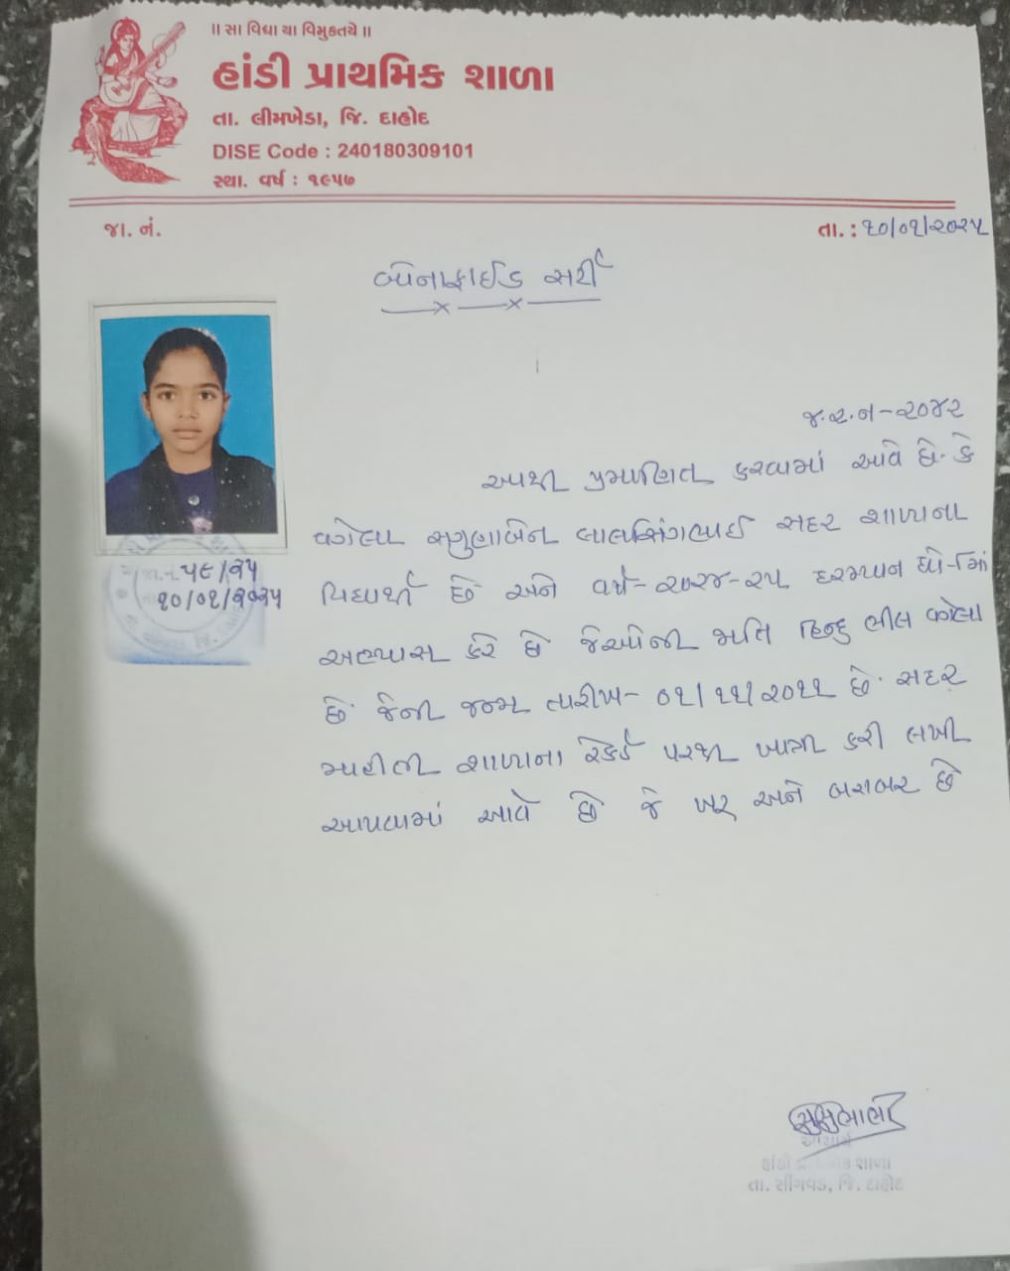 ॥ સા વિદ્યા યા વિમુક્તયે ॥
હાંડી પ્રાથમિક શાળા
તા. લીમખેડા, જિ. દાહોદ
DISE Code : 240180309101
સ્થા. વર્ષ : ૧૯૫૭
જા. નં.
તા. : ૧૦/૦૧/૨૦૨૫
બોનાફાઈડ સર્ટી
જ.ર.ન-૨૦૪૨
આથી પ્રમાણિત કરવામાં આવે છે. કે
સગુણાબેન લાલસિંગભાઈ સદર શાળાના
વિદ્યાર્થી છે અને વર્ષ-૨૦૨૪-૨૫ દરમ્યાન ધો-માં
અભ્યાસ કરે છે જેઓની જાતિ હિન્દુ ભીલ
છે. જેની જન્મ તારીખ- ૦૧/૧૧/૨૦૧૧ છે. સદર
માહીતી શાળાના રેકર્ડ પરથી ખાત્રી કરી લખી
આપવામાં આવે છે જે ખરૂ અને બરાબર છે
જા.નં. ૫૯/૨૫
૧૦/૦૧/૨૦૨૫
આચાર્ય
હાંડી શાળા
તા. સીંગવડ, જિ. દાહોદ